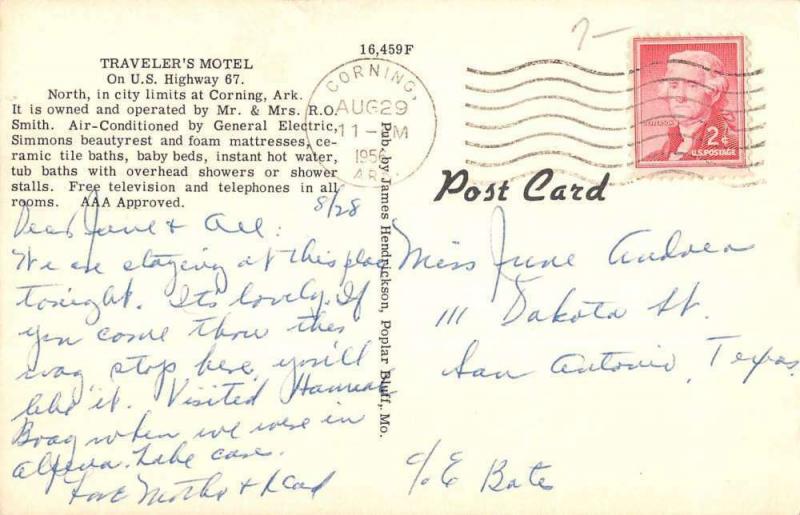 16,459F
TRAVELER'S MOTEL
On U.S. Highway 67.
North, in city limits at Corning, Ark.
It is owned and operated by Mr. & Mrs. R.O.
Smith. Air-Conditioned by General Electric,
Simmons beautyrest and foam mattresses, ce-
ramic tile baths, baby beds, instant hot water,
tub baths with overhead showers or shower
stalls. Free television and telephones in all
rooms. AAA Approved.
CORNING,
AUG 29
1956
ARK.
2¢
U.S. POSTAGE
Post Card
Pub. by James Hendrickson, Poplar Bluff, Mo.
8/28
Dear June & All:
We are staying at this place
tonight. It's lovely. If
you come thru this
way stop here, you'll
like it. Visited Hannah
Boag when we were in
Alpena. Take care.
Love Mother & Dad
Miss June Andrea
111 Dakota St.
San Antonio, Texas
c/o E Bate